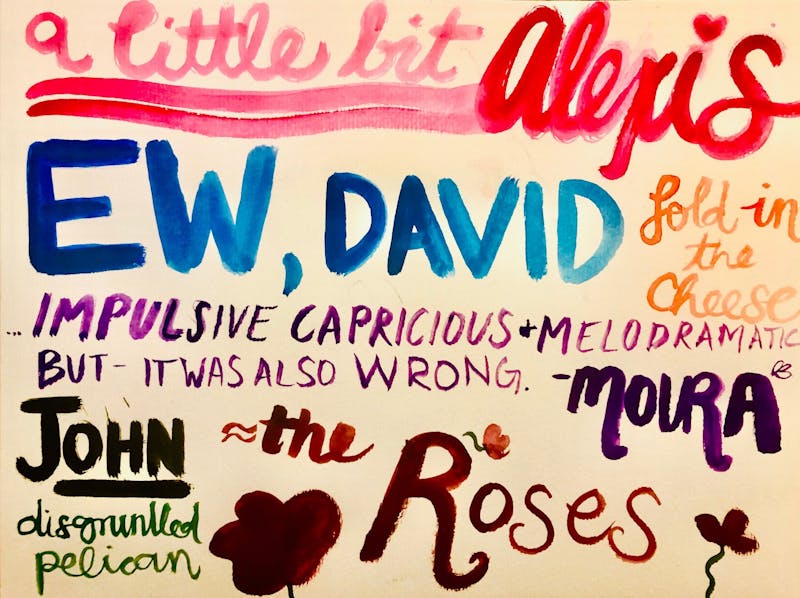 a little bit alexis
EW, DAVID
fold in
the
cheese
... IMPULSIVE CAPRICIOUS + MELODRAMATIC
BUT - IT WAS ALSO WRONG.
- MOIRA
JOHN
disgruntled
pelican
~the
Roses